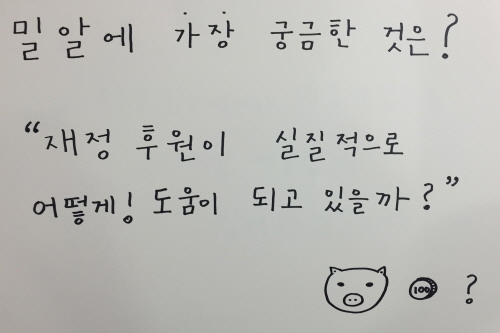 밀알에 가장 궁금한 것은?
“재정 후원이 실질적으로
어떻게! 도움이 되고 있을까?”
100 ?